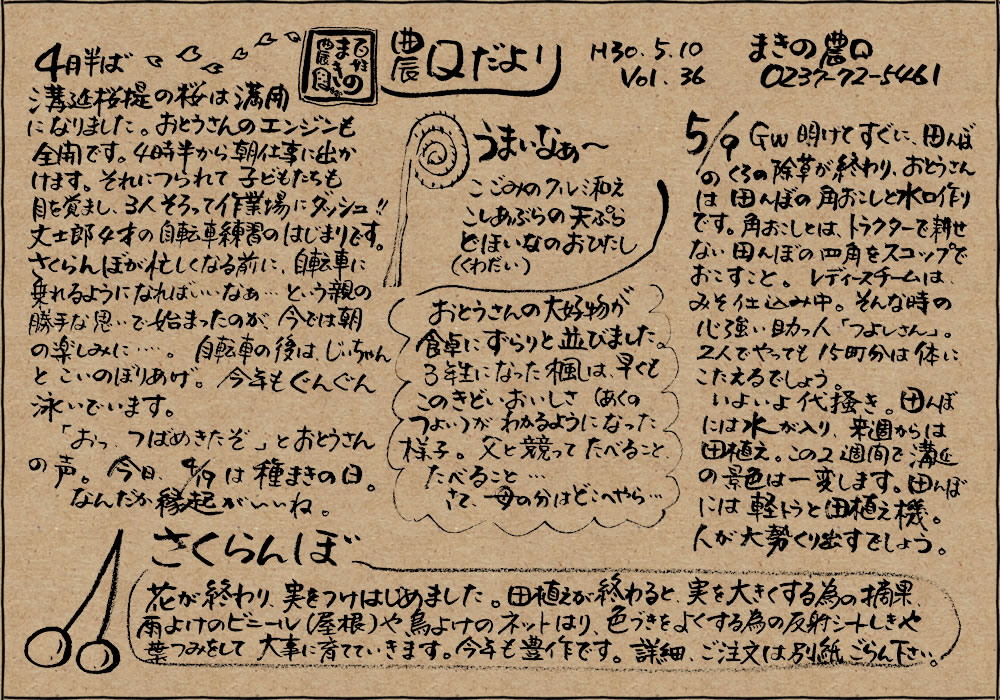 百姓
まきの
農園
農口だより
H30.5.10
Vol.36
まきの農口
0237-72-5461
4月半ば
溝延桜堤の桜は満開
になりました。おとうさんのエンジンも
全開です。4時半から朝仕事に出か
けます。それにつられて子どもたちも
目を覚まし、3人そろって作業場にダッシュ!!
丈士郎4才の自転車練習のはじまりです。
さくらんぼが忙しくなる前に、自転車に
乗れるようになればいいなぁ…という親の
勝手な思いで始まったのが、今では朝
の楽しみに…。自転車の後は、じぃちゃん
とこいのぼりあげ。今年もぐんぐん
泳いでいます。
「おっ、つばめきたぞ」とおとうさん
の声。今日、4/19は種まきの日。
なんだか縁起がいいね。
うまいなぁ〜
こごみのクルミ和え
こしあぶらの天ぷら
どほいなのおひたし
(くわだい)
おとうさんの大好物が
食卓にずらりと並びました。
3年生になった楓は、早くも
このきどいおいしさ(あくの
つよい)がわかるようになった
様子。父と競ってたべること、
たべること…
さて、母の分はどこへやら…
5/9 GW明けてすぐに、田んぼ
のくろの除草が終わり、おとうさん
は田んぼの角おこしと水口作り
です。角おこしとは、トラクターで耕せ
ない田んぼの四角をスコップで
おこすこと。レディースチームは、
みそ仕込み中。そんな時の
心強い助っ人「つよしさん」。
2人でやっても15町分は体に
こたえるでしょう。
いよいよ代掻き。田んぼ
には水が入り、来週からは
田植え。この2週間で溝延
の景色は一変します。田んぼ
には軽トラと田植え機。
人が大勢くり出すでしょう。
さくらんぼ
花が終わり、実をつけはじめました。田植えが終わると、実を大きくする為の摘果
雨よけのビニール(屋根)や、鳥よけのネットはり、色づきをよくする為の反射シートしきや
葉つみをして大事に育てていきます。今年も豊作です。詳細、ご注文は別紙ごらん下さい。